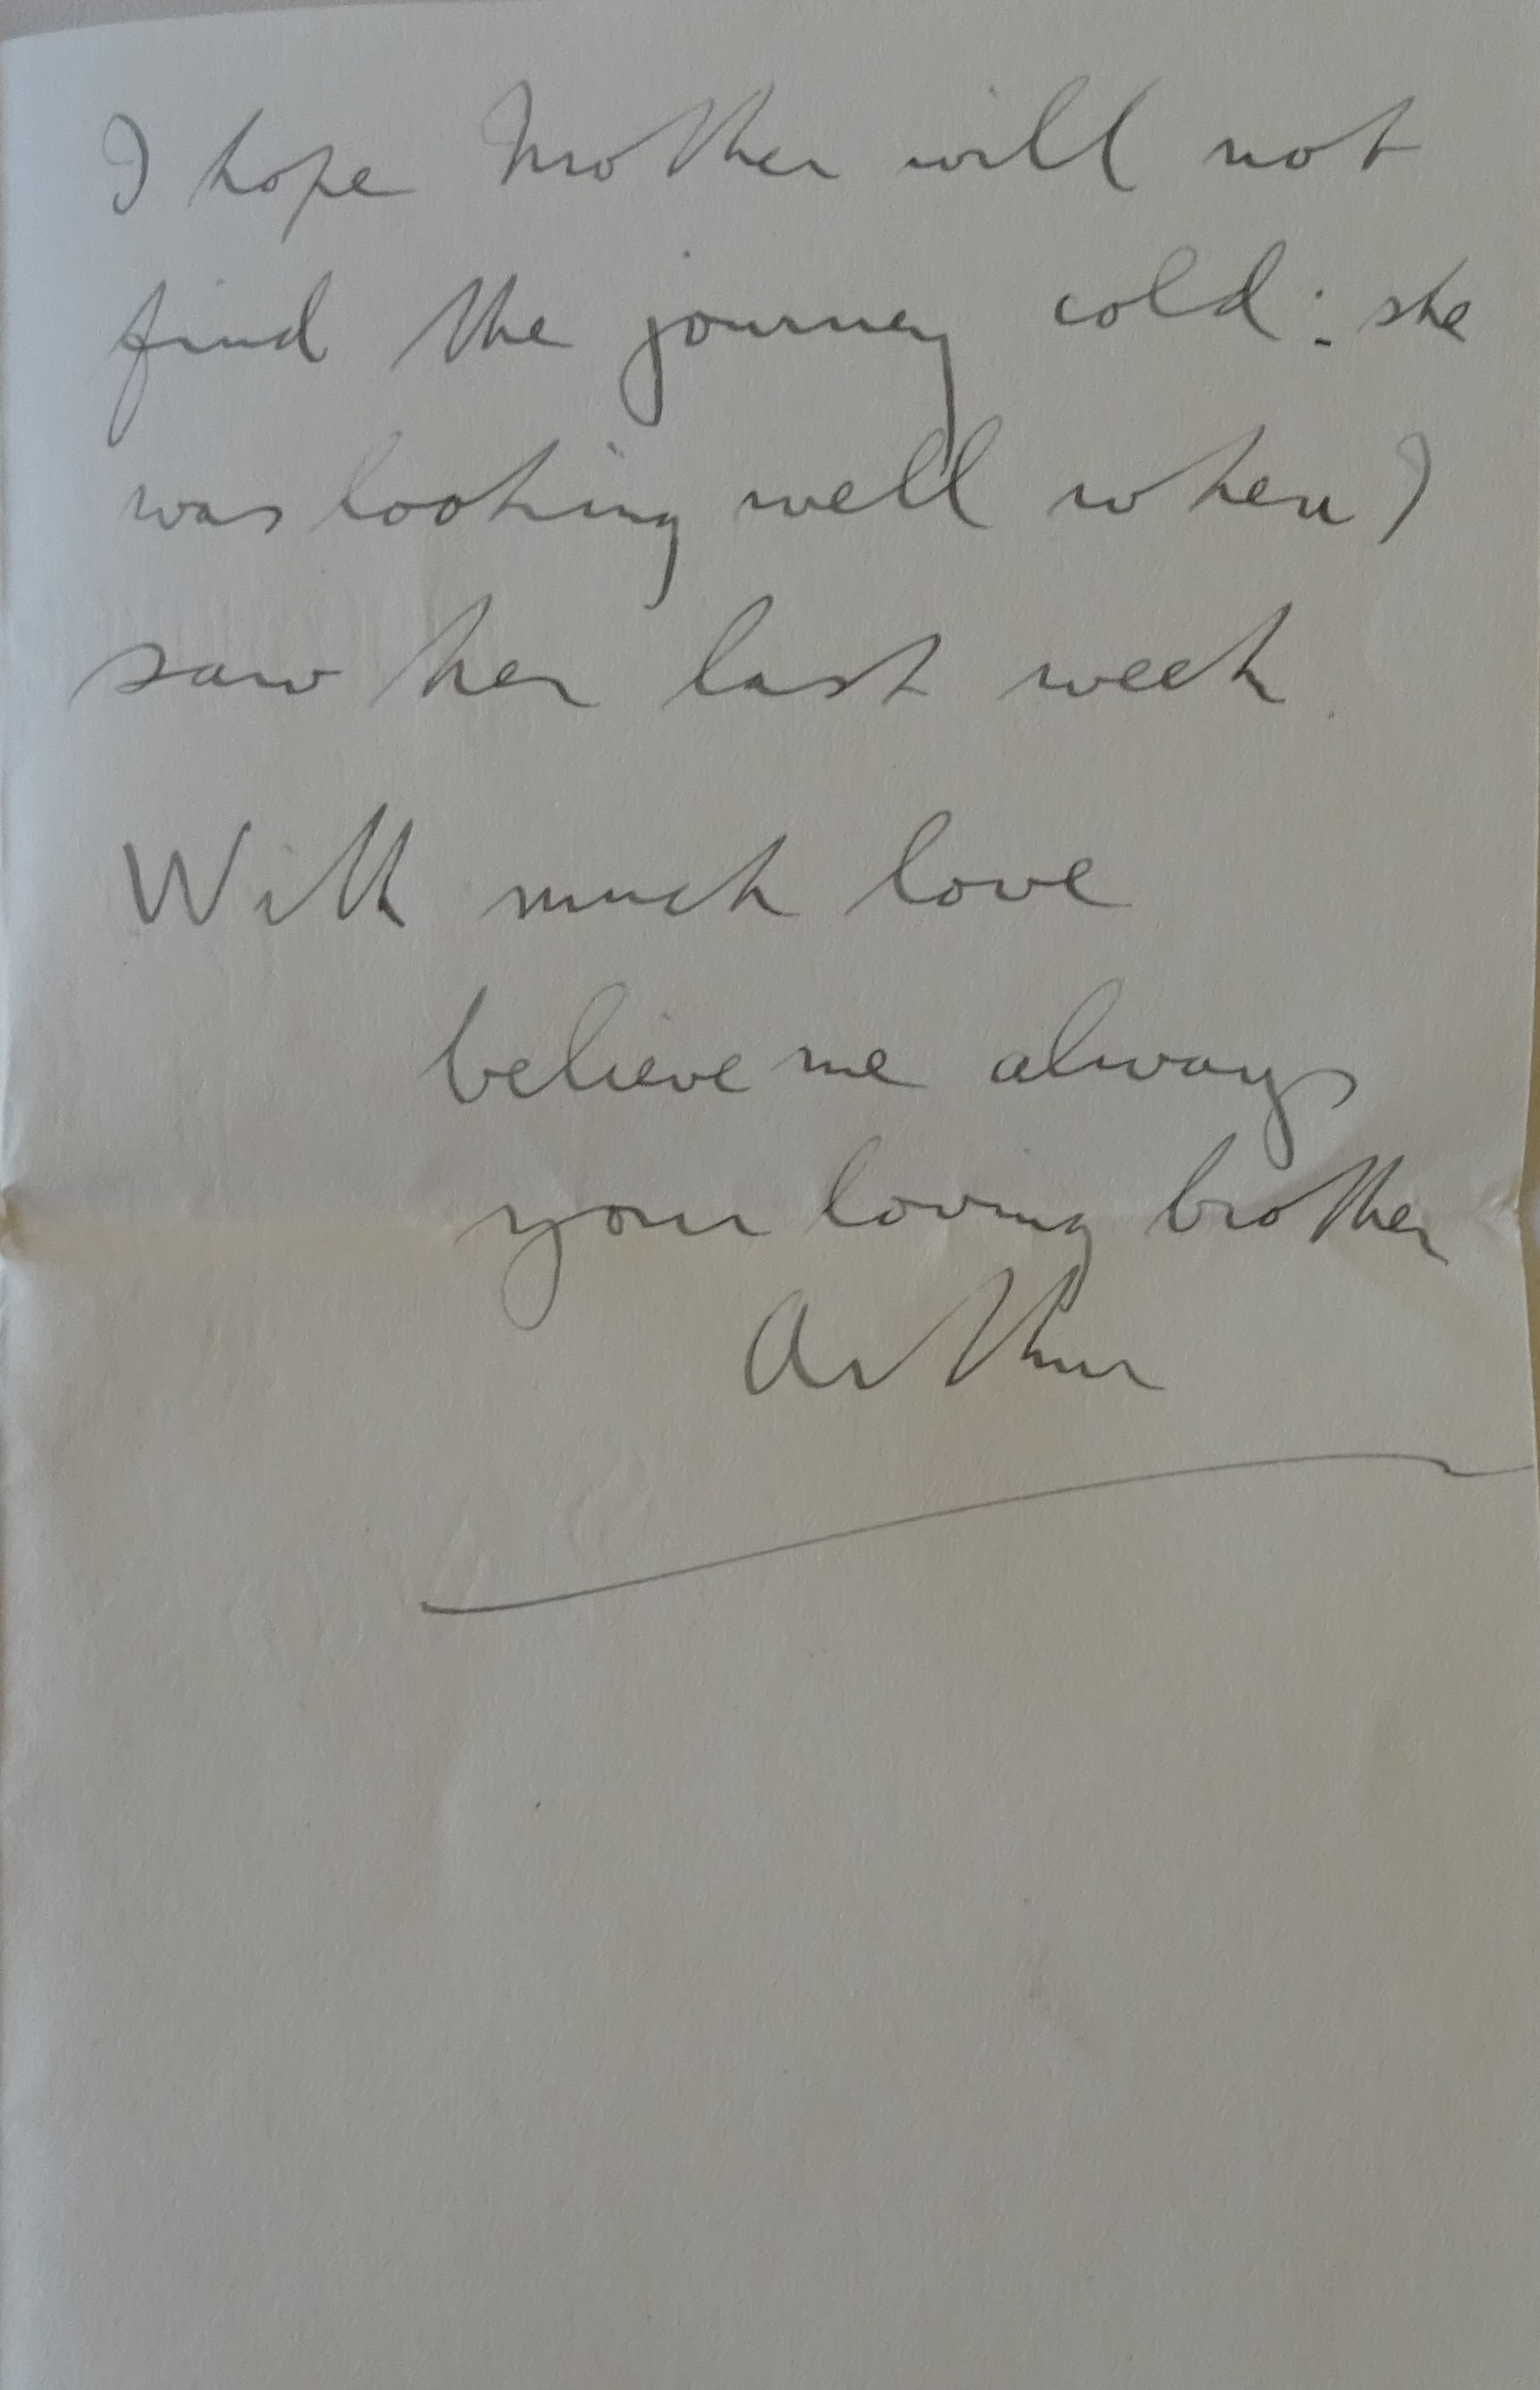 I hope Mother will not
find the journey cold: she
was looking well when I
saw her last week.
With much love
believe me always
your loving brother
Arthur